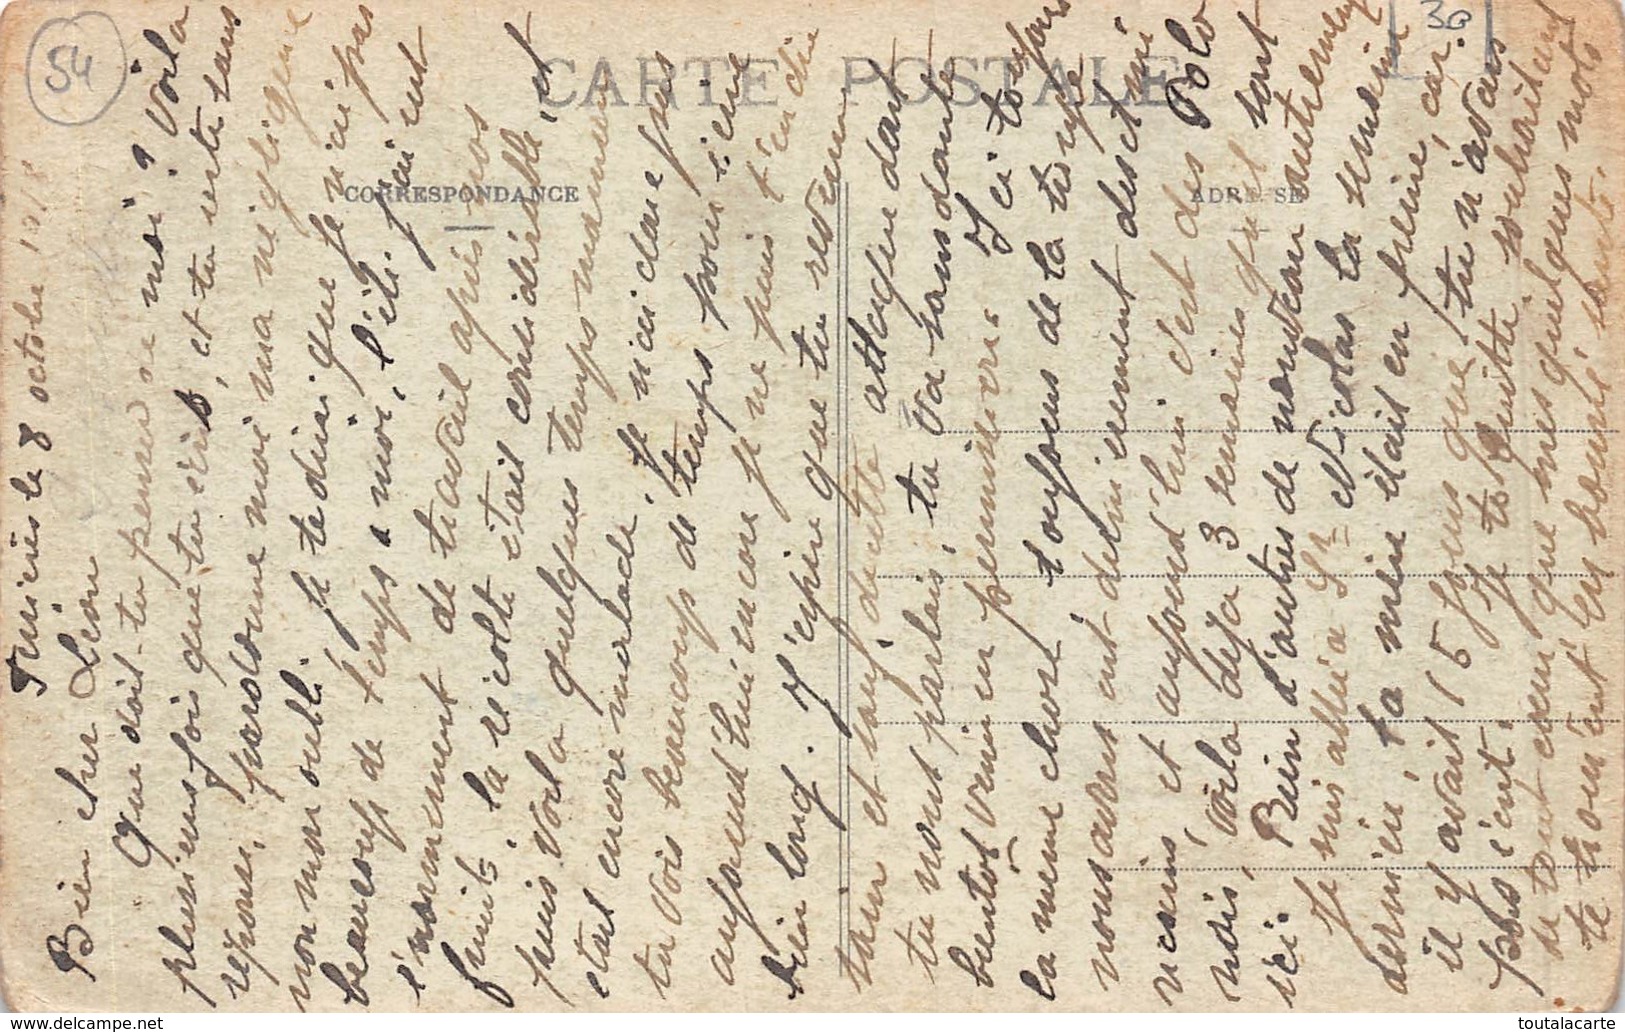 54
30
CARTE POSTALE
CORRESPONDANCE
ADRESSE
le 8 octobre 1918
Bien cher Léon
Que doit-tu penser de moi? Voila
plusieurs fois que tu écris, et tu reste sans
réponse, pardonne moi ma négligence
non mon oubli. Je te dirai que je n'ai pas
beaucoup de temps a moi, l'été. J'ai eut
énormement de travail après nos
fruits. la récolte était considérable, et
puis voila quelques temps maman
était encore malade. Je n'ai donc pas
tu vois beaucoup de temps pour écrire
aujourd'hui encore je ne puis t'en dire
bien long. J'espère que tu reviens
sain et sauf de cette attaque dont
tu nous parlais, tu va sans doute
bientot venir en permission. Ici toujours
la même chose toujours de la troupe
nous avons eut dernierement des
 et aujourd'hui c'est des Polo
nais, voila déjà 3 semaines qu'il sont
ici. Bien d'autres de nouveau autrement
Je suis allée a St Nicolas la semaine
dernière, ta mère était en peine, car
il y avait 15 jours que tu n'avais
pas écrit. Je te quitte souhaitant
de tout cœur que mes quelques mots
te trouv'ent en bonne santé.
toutalacarte.com
delcampe.net